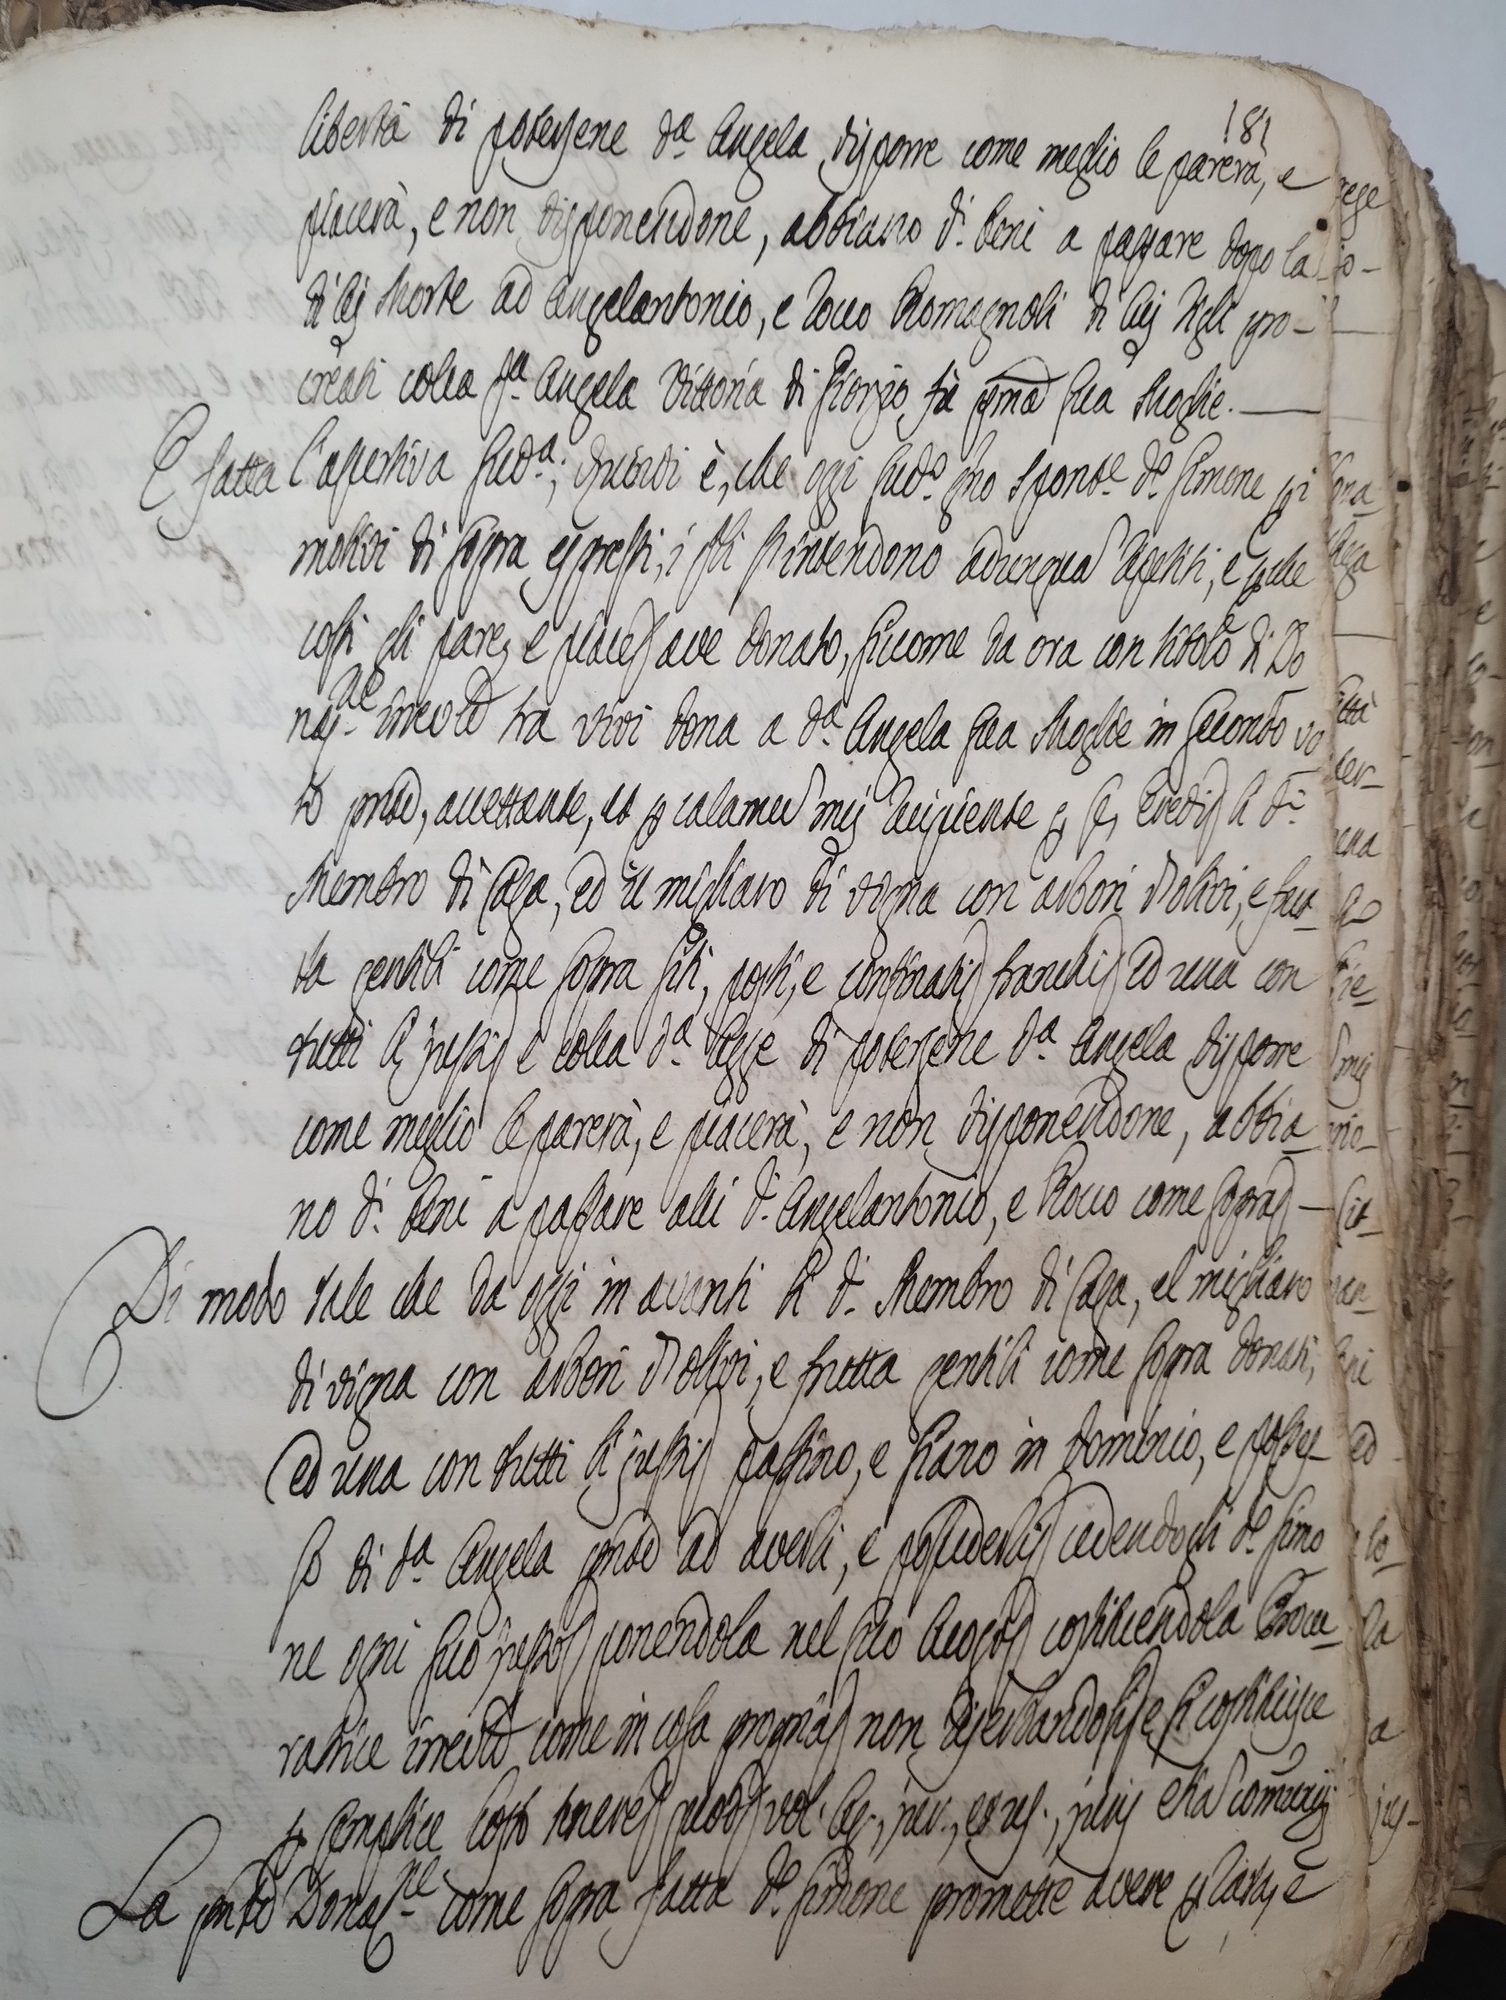 181
libertà di potersene d.ª Angela disporre come meglio le parerà, e
piacerà, e non disponendone, abbiano d.i beni a passare dopo la
di lei Morte ad Angelantonio, e Rocco Romagnoli di lei figli pro-
creati colla q.ª Angela Vittoria di Giorgio fù sua Moglie.
E fatta l'assertiva sud.ª; Quindi è, che oggi sud.º gno sponte d.º Simone pi
motivi di sopra espressi, i s'intendono adunqua repetiti, e che
così gli pare, e piace ave donato, siccome da ora con titolo di Do
naz.ne irrevble tra vivi dona a d.ª Angela sua Moglie in secondo vo
to pnte, accettante, et p calamu mei recipiente p se, eredi li d.i
Membro di Casa, ed il migliaro di vigna con arbori d'olivi, e frut-
ta gentili come sopra siti, posti, e confinati franchi ed una con
tutti li jussi e colla d.ª legge di potersene d.ª Angela disporre
come meglio le parerà, e piacerà, e non disponendone, abbia-
no d.i beni a passare alli d.i Angelantonio, e Rocco come sopra
Di modo tale che da oggi in avanti li d.i Membro di Casa, el migliaro
di vigna con arbori d'olivi, e frutta gentili come sopra donati,
ed una con tutti li jussi passino, e siano in dominio, e posses-
so di d.ª Angela pnte ad averli, e possederli cedendogli d.º Simo
ne ogni suo jusso ponendola nel suo luogo costituendola Procu-
ratrice irrevble come in cosa propria non riserbandosi se si costituisce
p semplice Costo tenere vol. jur., et res., juris etia comunis
La pnte Donaz.ne come sopra fatta d.º Simone promette avere p rata, e